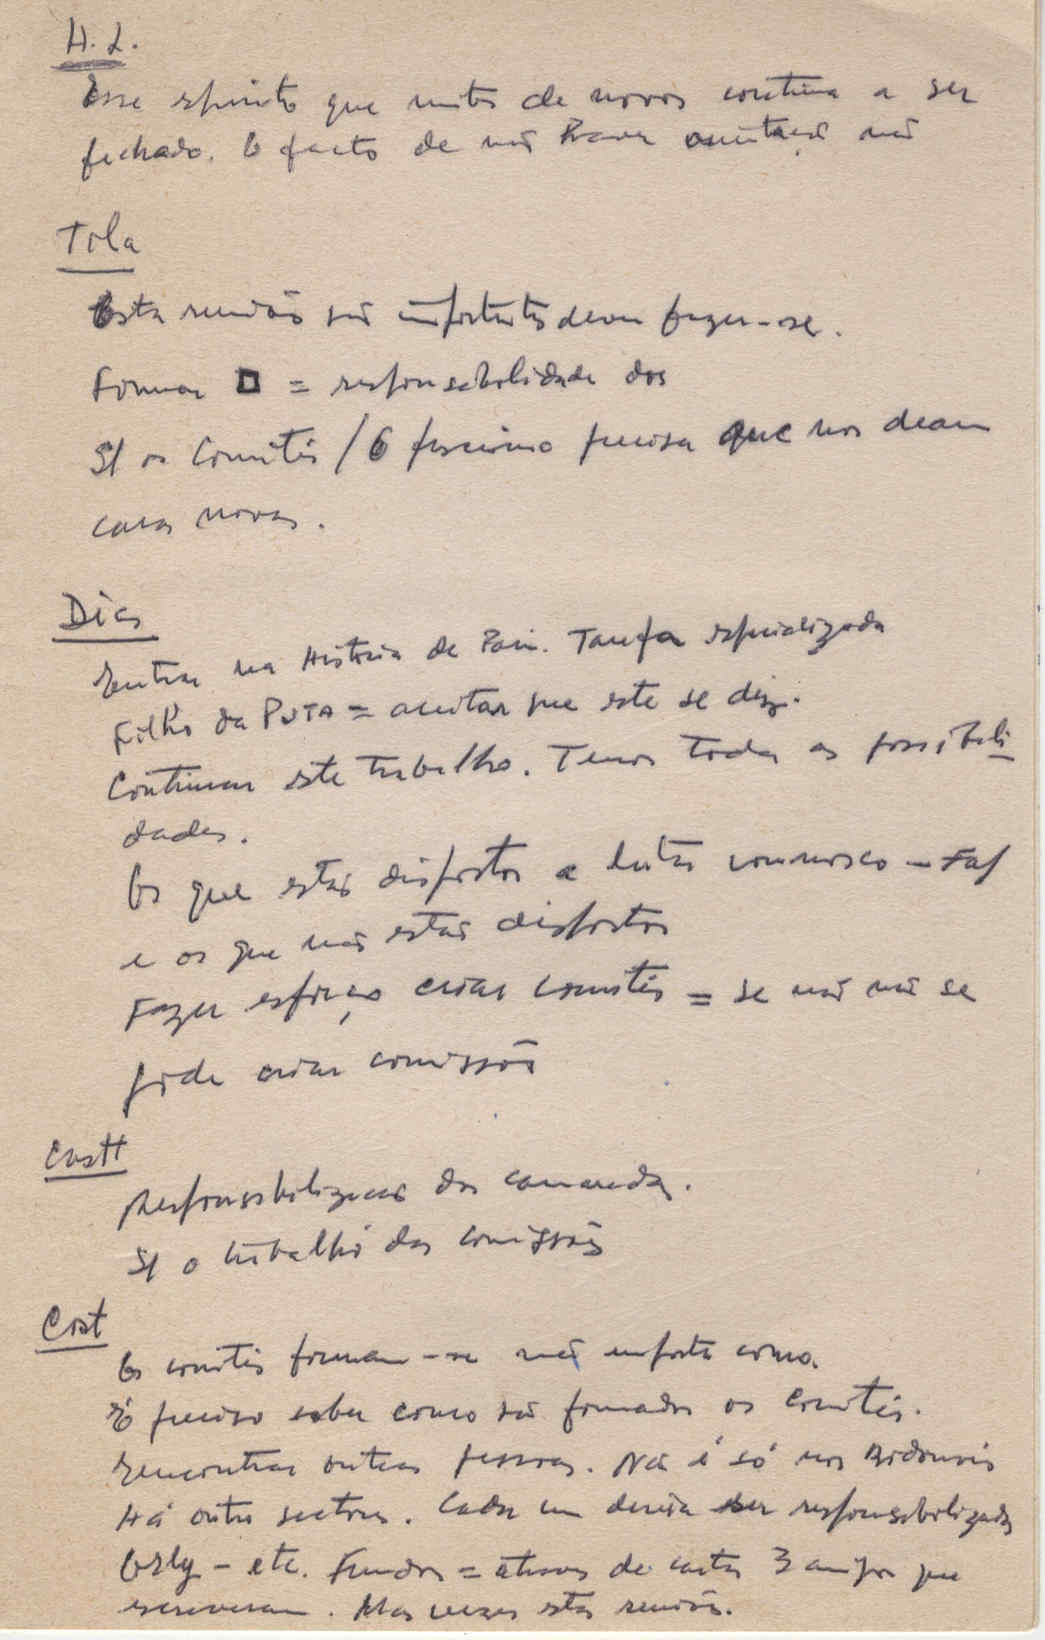 H. L.
Esse espirito que muitos de novos continua a ser
fechado. O facto de não haver não
Tola
Esta reunião são importantes devem fazer-se.
Formar □ = responsabilidade dos
S/ os Comités / O próximo precisa que nos deam
caras novas.
Dias
Entrar na História de Tarefa especializada
Filho da PUTA = aceitar que este se diz.
Continuar este trabalho. Temos todas as possibili
dades.
Os que estão dispostos a lutar connosco —
e os que não estão dispostos
Fazer esforço criar comités = se não não se
pode criar comissões
Costt
Responsabilização dos camaradas.
S/ o trabalho das comissões
Cost
Os comités formam-se não importa como.
É preciso saber como são formados os Comités.
Encontrar outras pessoas. Não é só nos Bidonvis
Há outros sectores. Cada um devia ser responsabilizado
Orly - etc. Fundos = através de cartas 3 amigos que
escreveram. Mas vezes estas reuniões.